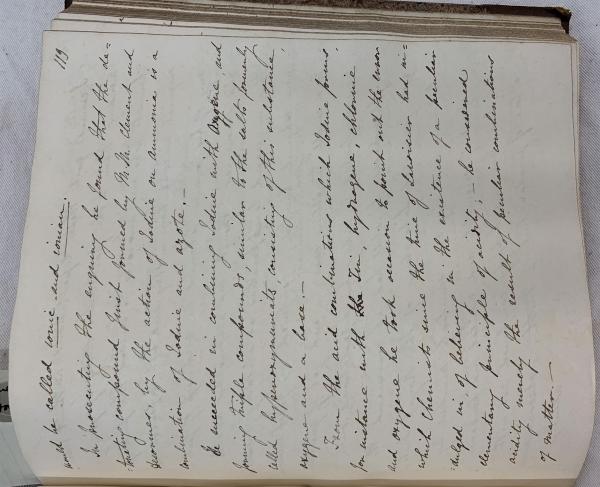 119
would be called ionic and ionian.
In prosecuting the enquiry he found that the de=
tonating compound first formed by M.M. Clement and
Desormes, by the action of Iodine on ammonia is a
combination of Iodine and azote. —
He succeeded in combining Iodine with Oxygene, and
forming triple compounds, similar to the salts formerly
called hyperoxymuriats consisting of this substance,
oxygene and a base. —
From the acid combinations which Iodine forms,
for instance with Tin, hydrogene, chlorine
and oxygene he took occasion to point out the error
which Chemists since the time of Lavoisier had in=
dulged in, of believing in the existence of a peculiar
elementary principle of acidity; — he considered
acidity merely the result of peculiar combinations
of matter. —